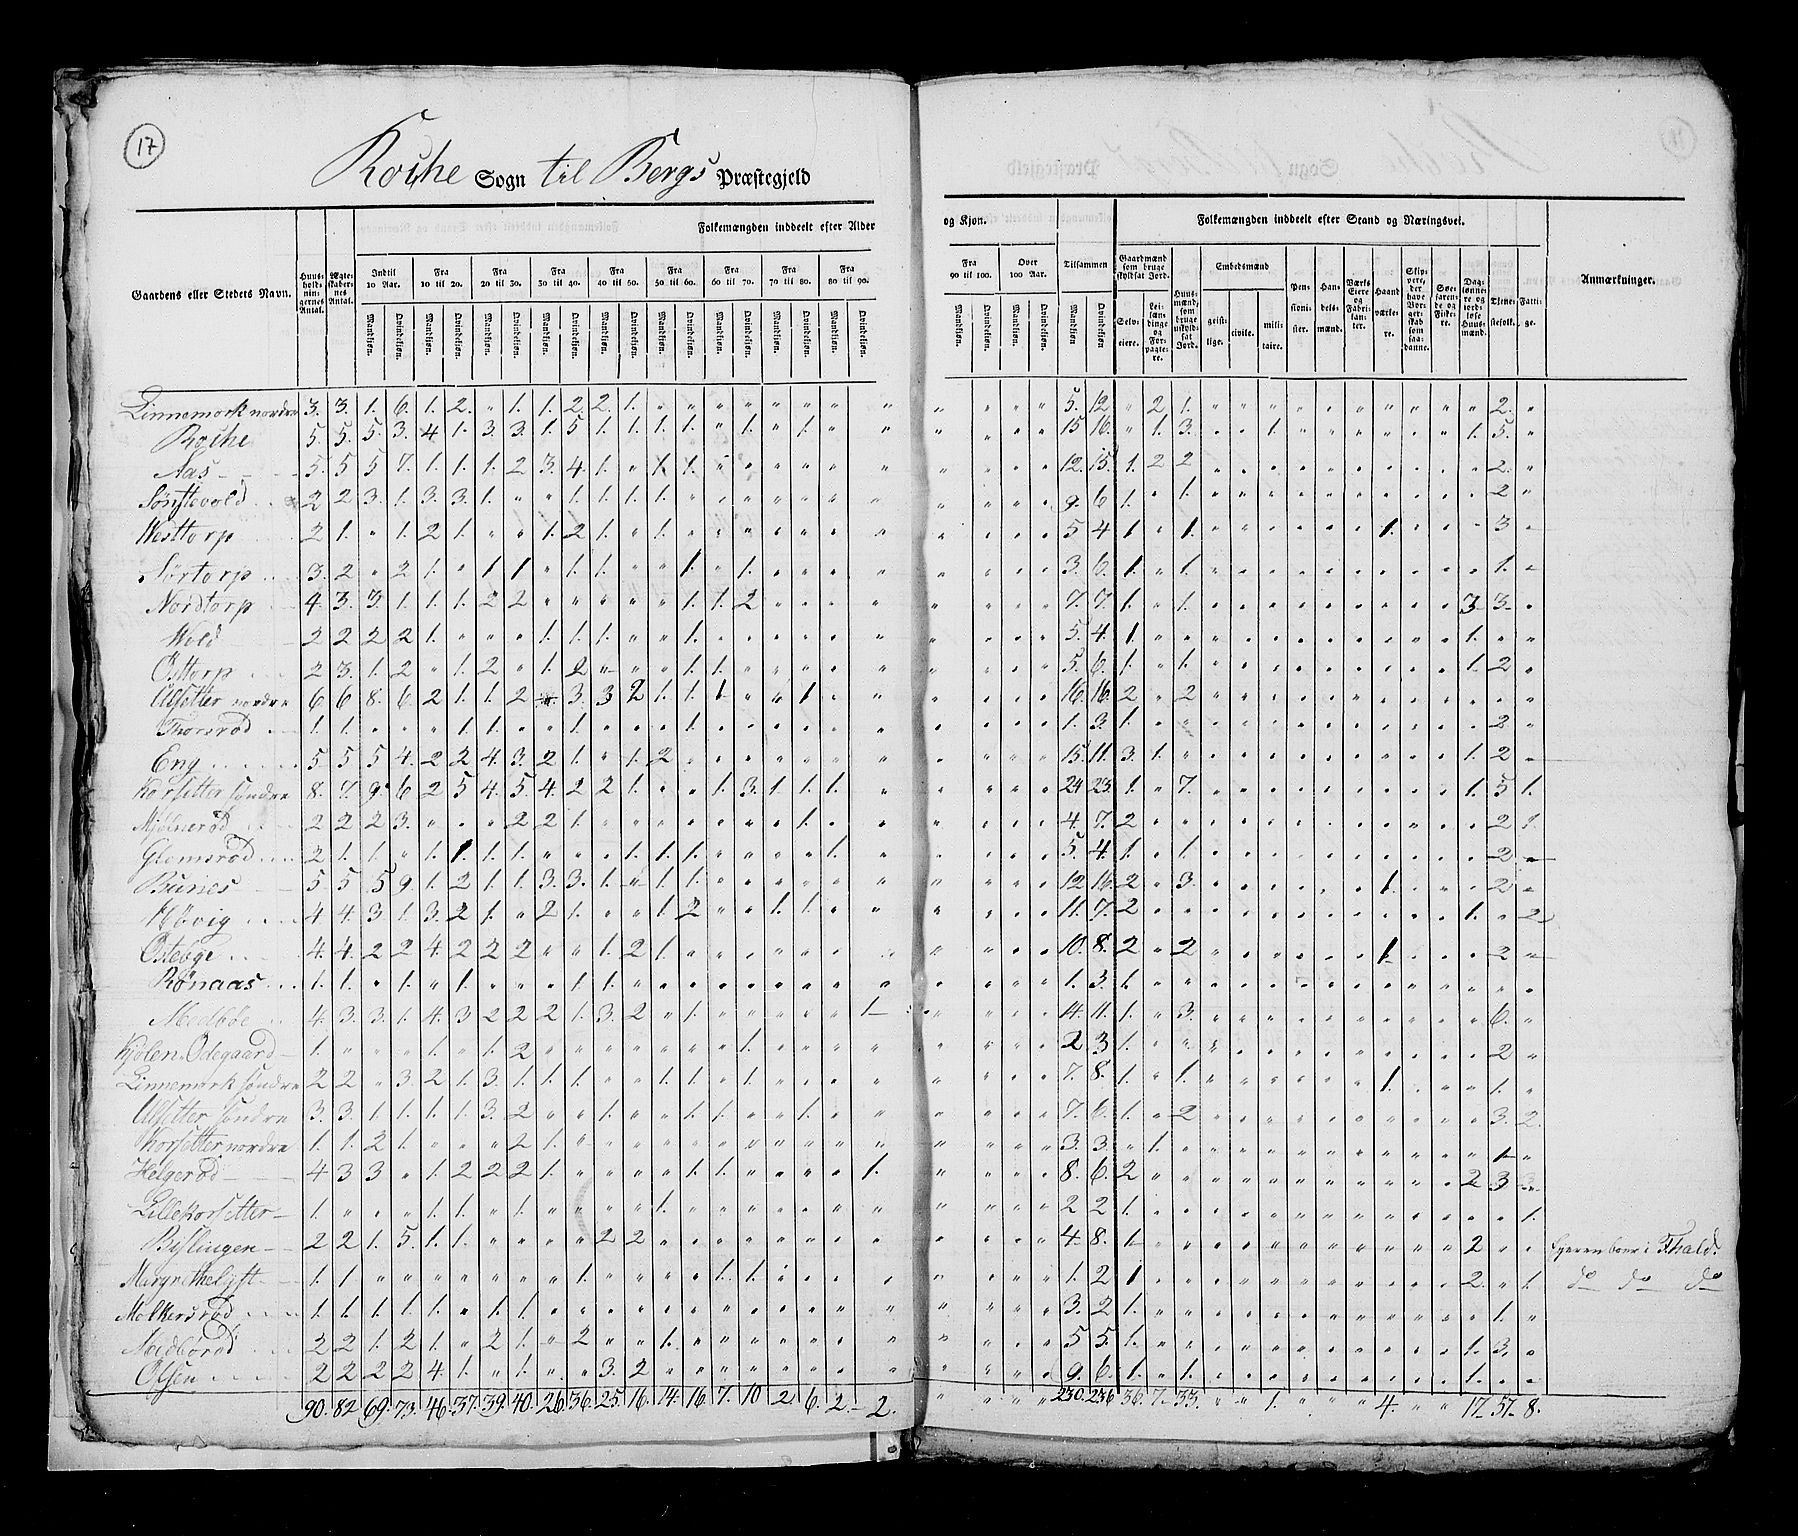 17
Rokke Sogn til Bergs Præstegjeld
Gaardens eller Stedets Navn.
Huusholdningernes Antal.
Ægteskabernes Antal.
Folkemængden inddeelt efter Alder og Kjøn.
Indtil 10 Aar.
Fra 10 til 20.
Fra 20 til 30.
Fra 30 til 40.
Fra 40 til 50.
Fra 50 til 60.
Fra 60 til 70.
Fra 70 til 80.
Fra 80 til 90.
Fra 90 til 100.
Over 100 Aar.
Tilsammen
Mandkiøn. Qvindekiøn.
Folkemængden inddeelt efter Stand og Næringsvei.
Gaardmænd som bruge skyldsat Jord.
Selveiere.
Leilændinge og Forpagtere.
Huusmænd, som bruge uskyldsat Jord.
Embedsmænd
geistlige.
civile.
militaire.
Pensionister.
Handelsmænd.
Værks Eiere og Fabrikanter.
Haandværkere.
Skippere, der have Borgerskab som saadanne.
Søefarende og Fiskere.
Dagslønnere og jordløse Huusmænd.
Tjenestefolk.
Fattige.
Anmærkninger.
Linnemark nordre 3. 3. 1. 6. 1. 2. " 1. 1. 2. 2. 1. 5. 12 " 2 1. 2.
Rokke 5. 5. 5. 3. 4 1. 3. 3. 1. 5 1. 1. 1. 1. " 1. " 1. 15 16. " 1. 3. 1. 1. 5.
Aas 5. 5 5 7. 1. 1. 1. 2 3. 4. 1. 12. 15. 1. 2 2 2.
Sønstevold 2 2 3. 1. 3. 3. 1. " " 1. 1. 1. 1. 9. 6 1. " 1. 2
Westtorp 2 1. " 1. 2 1. " " 1. 2 1. " 1. 5 4 1. " 1. 1. 3
Sørtorp 3. 2 " 2 1. " 1 1 " 1. 1. " " 1. " 1. 3. 6. 1. " 1. 1.
Nordtorp 4. 3. 3. 1. 1. 1. 2 2 1. 1. 2 7. 7. 1. " 1. 3 3.
Wold 2 2 2 2 1. 1. 1. 1. 1. 5. 4. 1. 1.
Osttorp 2 3. 1. 2 " 1. 2 " 1. 2 1. 1. 5. 6. 1. " 1. 1. 2
Ulsetter nordre 6 6 8. 6. 2 1. 1. 2 3. 3 2 1. 1. 1 1. 16. 16. 2 " 2
Thorsrød 1. 1. 1. 1. 1. 1. 1. 3. 1. 2
Eng 5 5 5 4. 2 2 4. 3. 2 1. " 1. 2 15. 11. 3. 1. 1. 2
Korsetter søndre 8. 7. 9. 6 2 5 4. 5. 4. 2 2 1. 1. 3. 1. 1. 1. 24 23. 1. " 7. 1. 5 1.
Mjølnerød 2 2 2 3. 2 2 1. 1. 4. 7. 2 2 1.
Glomsrød 2 1. 1. " 1. 1. 1. 1. 1. 1. 1. 1. 5. 4. 1. " 1. 2
Bunes 5. 5 5 9. 1. 2 1. 1. 3. 3. 1. " 1. 1. 12 16. 2 " 3. 1. 2
Høvig 4 4. 3 1. 3. 2 1. " 2 1. " " 1. 2 " " 1. 1. 11. 7. 2 1. " 2
Østebye 4. 4. 2 2 4. 2 2 2 " " 1. 2 1. 10. 8. 2 " 2 1. 2
Rønaas 1. 1. " 1. " 1. 1. 1. 1. 3. 1.
Medbøe 4. 3. 3. 1. 4. 3 2 2 2 1. 3. 2 " 1. 1 11. 1. " 3. 6.
Kjølen Ødegaard 1. " " " 1. " 1. 2 1. 2 3. 1. 2
Linnemark søndre 2 2 " 3. 2 1. 3. 1. 1. 1. 1. 1. 7. 8. 1. " 1. 1. 1.
Ulsetter søndre 3. 3. 1. 1. 1. 1. 3. 2 " " 1. " " 1. 1. 1. 7. 6. 1. " 2 3. 2.
Korsetter nordre 1. 1. 2 1. 2 1. 3. 3. " 1. 1.
Helgerød 4 3 3 " 1. 2 2 2 1. 1. 1. 1. 8. 6. 2 2 3
Lillekorsetter 1. 1. 1. 1. 1. 2 2 1. 1.
Bislingen 2 2 1. 5. 1. 1. 2 2 4. 8. 1. 2 Ejeren boer i Fhald.
Margrethelyst 1. 1 1. 1. 1. 1. 2 1 2. " 1. do do do
Malkersrød 1. 1. 1. 1. 1. " 1. 1. 3. 2 1. 1.
Nedborød 2 2 1. 2 1. " 2 1. " 2 1. 5 5. 1. 1. 3.
Olsen 2 2 2 2 4. 1. " 1. 3. 2 9. 6. 1. " 1. 1.
90. 82 69. 73. 46. 37. 39. 40. 26. 36. 25. 16. 14. 16. 7. 10 2. 6. 2. 2. 230. 236 36. 7. 33. 1. 4. 17. 57. 8.